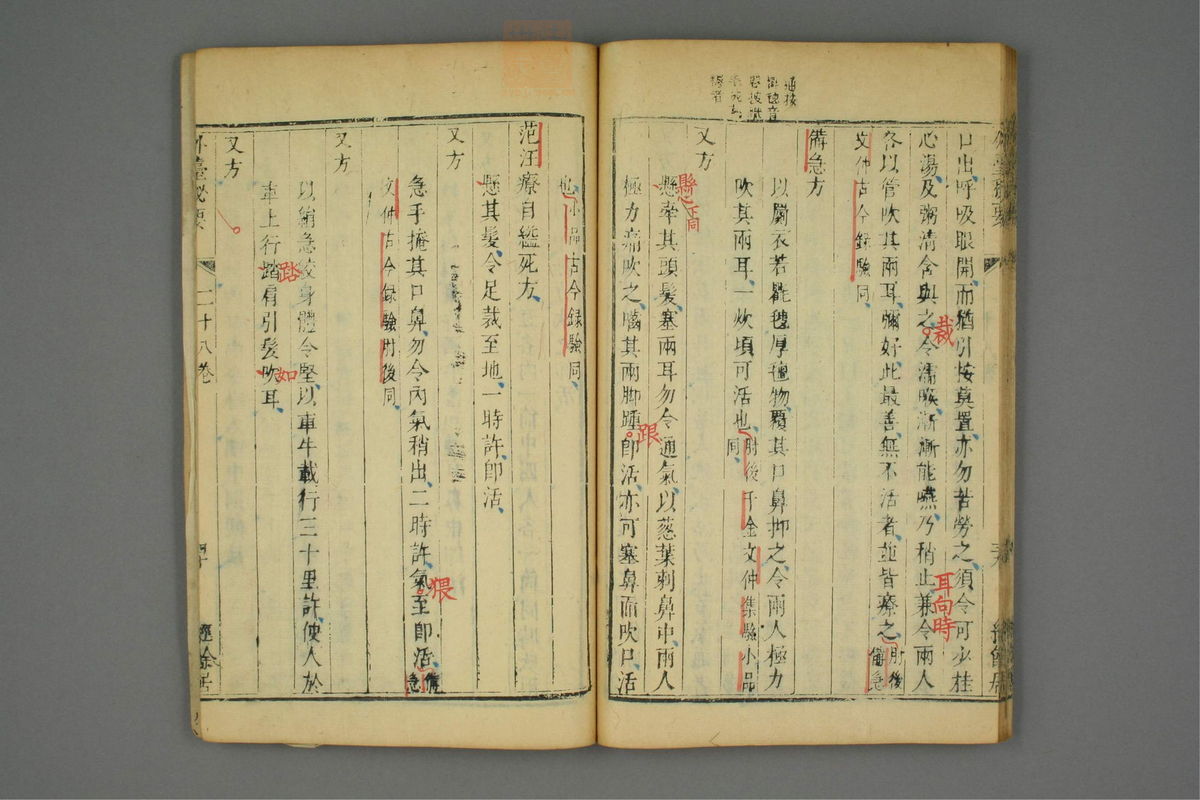 口出呼吸眼開而猶引按莫置亦勿苦勞之須令可少桂
心湯及粥清含與之令濡喉漸漸能嚥乃稍止兼令兩人
各以管吹其兩耳彌好此最善無不活者並皆療之肘後備急
文仲古今録驗同
備急方
以罽衣若氍毹厚氊物覆其口鼻抑之令兩人極力
吹其兩耳一炊頃可活也肘後千金文仲集驗小品
同
又方
懸牽其頭髮塞兩耳勿令通氣以葱葉刺鼻中兩人
極力痛吹之嚙其兩脚踵即活亦可塞鼻而吹口活
裁
耳向時
懸正同
跟
也小品古今録驗同
范汪療自縊死方
懸其髮令足裁至地一時許即活
又方
急手掩其口鼻勿令內氣稍出二時許氣至即活備急
文仲古今録驗肘後同
又方
以綃急絞身體令堅以車牛載行三十里許使人於
車上行踏肩引髮吹耳
又方
外臺秘要 二十八卷 經餘居
猥
踏
如